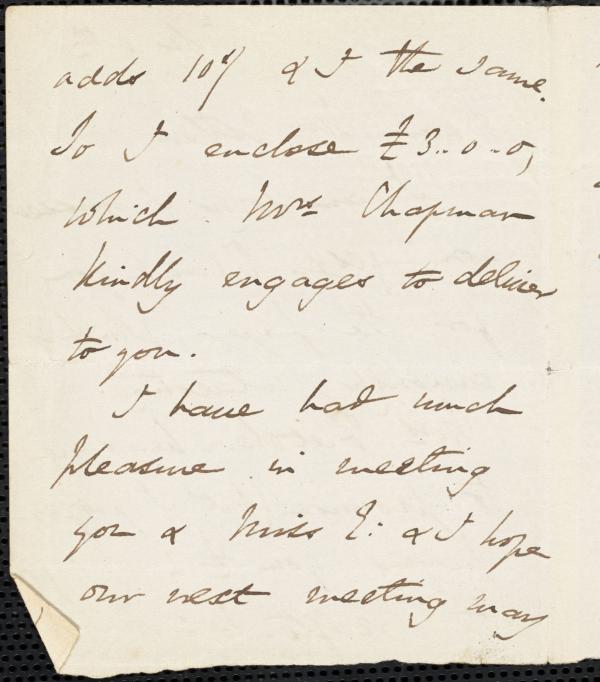 adds 10s/ & I the same.
So I enclose £3..0..0,
which Mrs Chapman
kindly engages to deliver
to you.
I have had much
pleasure in meeting
you & Miss E: & I hope
our next meeting may